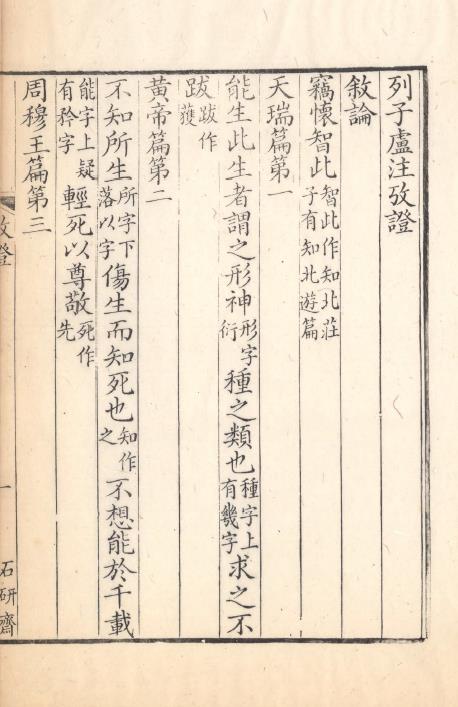 列子盧注攷證
敘論
竊懷智此智此作知北莊子有知北遊篇
天瑞篇第一
能生此生者謂之形神形字衍種之類也種字上有幾字求之不
跋跋作獲
黃帝篇第二
不知所生所字下落以字傷生而知死也知作之不想能於千載
能字上疑有矜字輕死以尊敬死作先
周穆王篇第三
攷證 一 石研齋